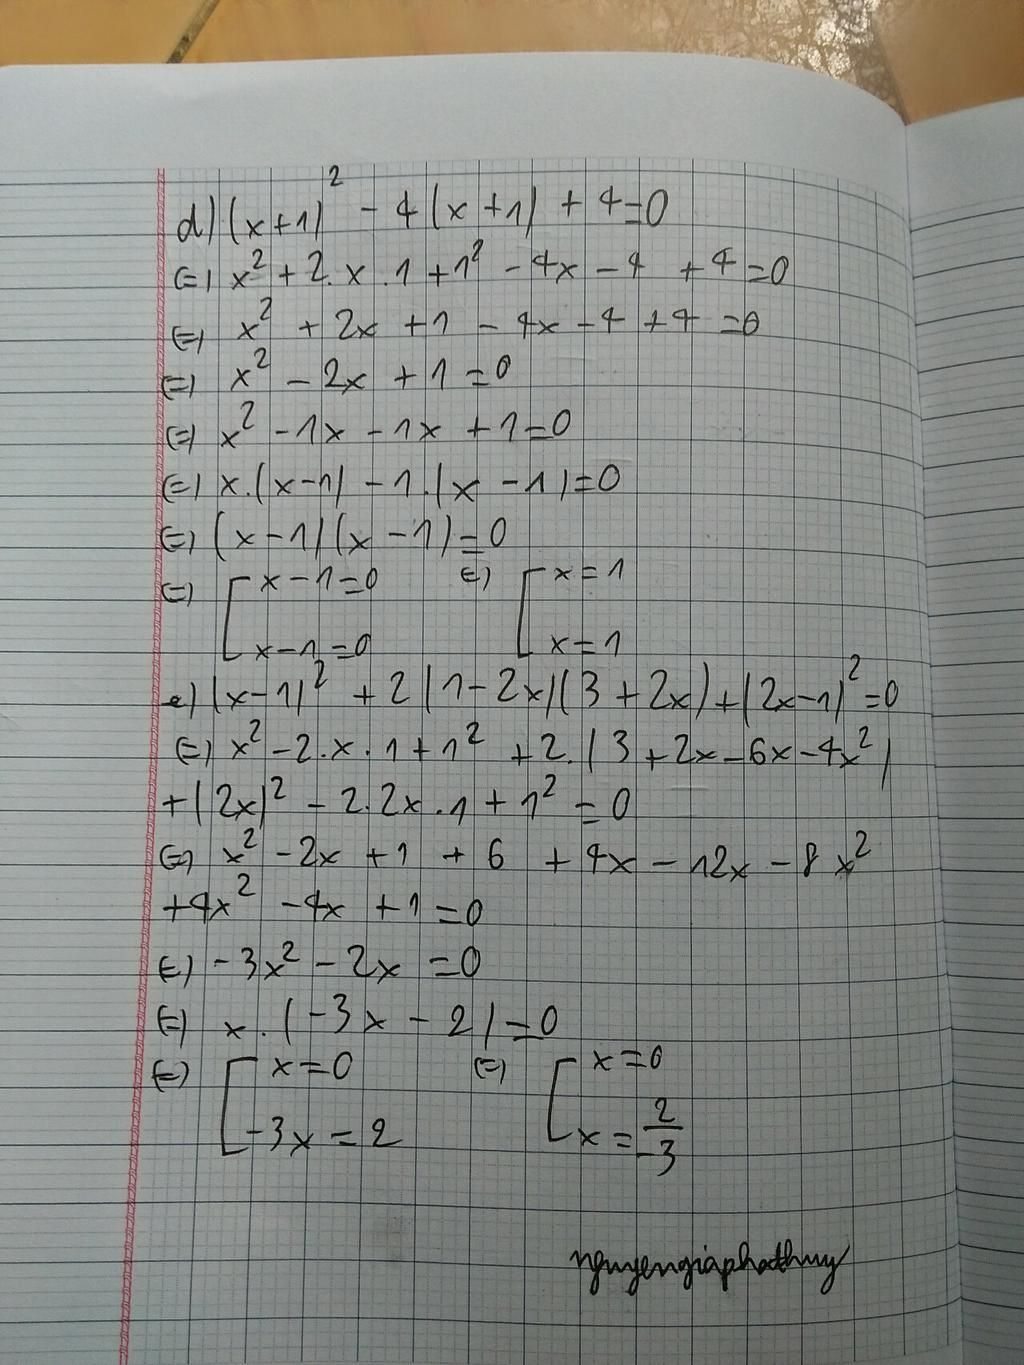 d) (x+1)² - 4(x+1) + 4=0
(=) x² + 2.x.1 + 1² - 4x - 4 + 4=0
(=) x² + 2x + 1 - 4x - 4 + 4 = 0
(=) x² - 2x + 1 = 0
(=) x² - 1x - 1x + 1 = 0
(=) x.(x-1) - 1.(x - 1) = 0
(=) (x-1)(x-1) = 0
(=) [ x - 1 = 0 (=) [ x = 1
x - 1 = 0 x = 1
e) (x-1)² + 2(1-2x)(3+2x) + (2x-1)² = 0
(=) x² - 2.x.1 + 1² + 2.(3 + 2x - 6x - 4x²)
+ (2x)² - 2.2x.1 + 1² = 0
(=) x² - 2x + 1 + 6 + 4x - 12x - 8x²
+4x² - 4x + 1 = 0
(=) -3x² - 2x = 0
(=) x.(-3x - 2) = 0
(=) [ x = 0 (=) [ x = 0
-3x = 2 x = 2/-3
nguyengiaphathuy